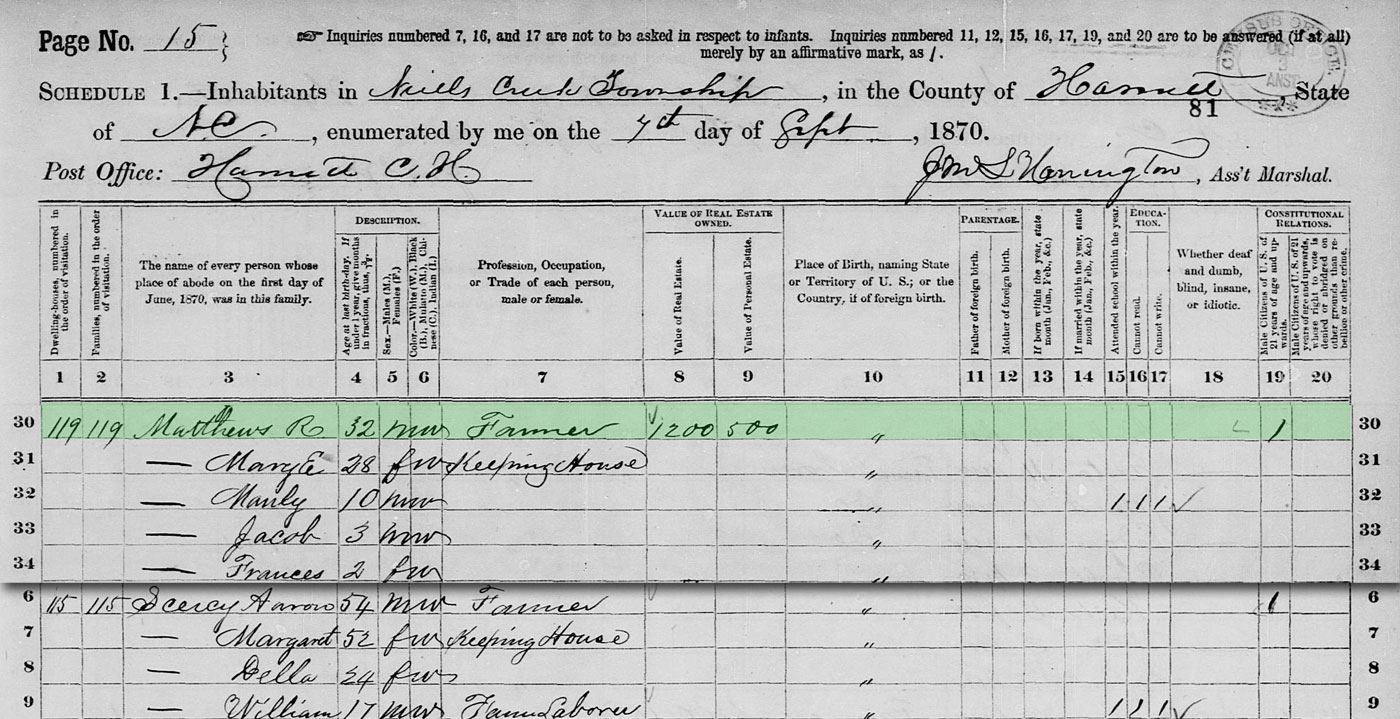 Page No. 15
☞ Inquiries numbered 7, 16, and 17 are not to be asked in respect to infants. Inquiries numbered 11, 12, 15, 16, 17, 19, and 20 are to be answered (if at all)
merely by an affirmative mark, as /.
CENSUS OFFICE.
SCHEDULE 1.—Inhabitants in Neills Creek Township, in the County of Harnett, State
81
of N.C., enumerated by me on the 7th day of Sept, 1870.
Post Office: Harnett C. H.
Jno S Harrington, Ass't Marshal.
Dwelling-houses, numbered in the order of visitation.
Families, numbered in the order of visitation.
The name of every person whose place of abode on the first day of June, 1870, was in this family.
DESCRIPTION.
Age at last birth-day. If under 1 year, give months in fractions, thus, 3/12.
Sex.—Males (M.), Females (F.)
Color.—White (W.), Black (B.), Mulatto (M.), Chinese (C.), Indian (I.)
Profession, Occupation, or Trade of each person, male or female.
VALUE OF REAL ESTATE OWNED.
Value of Real Estate.
Value of Personal Estate.
Place of Birth, naming State or Territory of U. S.; or the Country, if of foreign birth.
PARENTAGE.
Father of foreign birth.
Mother of foreign birth.
If born within the year, state month (Jan., Feb., &c.)
If married within the year, state month (Jan., Feb., &c.)
Attended school within the year.
EDUCATION.
Cannot read.
Cannot write.
Whether deaf and dumb, blind, insane, or idiotic.
CONSTITUTIONAL RELATIONS.
Male Citizens of U. S. of 21 years of age and upwards.
Male Citizens of U. S. of 21 years of age and upwards, whose right to vote is denied or abridged on other grounds than rebellion or other crime.
1 2 3 4 5 6 7 8 9 10 11 12 13 14 15 16 17 18 19 20
30 119 119 Matthews R 32 m w Farmer 1200 500 " 1 30
31 — Mary E 28 f w Keeping House " 31
32 — Manly 10 m w " 1 1 1 ✓ 32
33 — Jacob 3 m w " 33
34 — Frances 2 f w " 34
6 115 115 Scercy Aaron 54 m w Farmer " 1 6
7 — Margaret 52 f w Keeping House " 7
8 — Della 24 f w " 8
9 — William 17 m w Farm Laborer " 1 1 1 ✓ 9